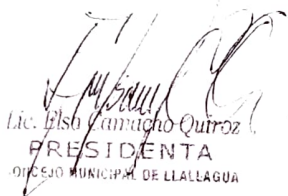 Lic. Elsa Camacho Quiroz
PRESIDENTA
CONCEJO MUNICIPAL DE LLALLAGUA